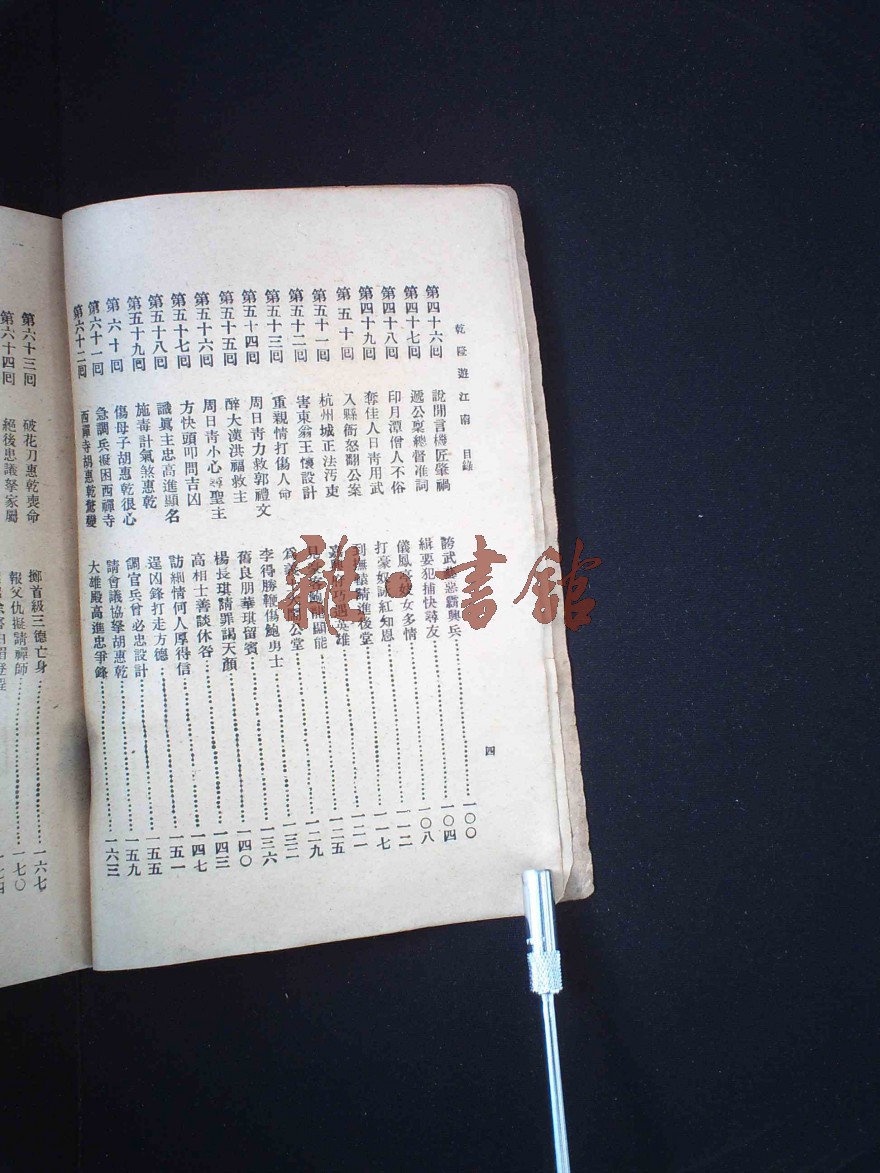 乾隆遊江南 目錄 四
第四十六回 說閒言機匠肇禍 誇武藝惡霸興兵 一〇〇
第四十七回 遞公稟總督准詞 緝要犯捕快尋友 一〇四
第四十八回 印月潭僧人不俗 儀鳳亭妓女多情 一〇八
第四十九回 奪佳人日青用武 打豪奴詠紅知恩 一一二
第五十回 入縣衙怒翻公案 到撫轅請進後堂 一一七
第五十一回 杭州城正法汚吏 英雄 一二一
第五十二回 害東翁王懷設計 見 能 一二五
第五十三回 重親情打傷人命 公堂 一二九
第五十四回 周日青力救郭禮文 李得勝鞭傷鮑勇士 一三二
第五十五回 醉大漢洪福救主 舊良朋華琪留賓 一三六
第五十六回 周日青小心尋聖主 楊長琪請罪謁天顏 一四〇
第五十七回 方快頭叩問吉凶 高相士善談休咎 一四三
第五十八回 識眞主忠高進顯名 訪細情何人厚得信 一四七
第五十九回 施毒計氣煞惠乾 逞凶鋒打走方德 一五一
第六十回 傷母子胡惠乾很心 調官兵曾必忠設計 一五五
第六十一回 急調兵擬困西禪寺 請會議協拏胡惠乾 一五九
第六十二回 西禪寺胡惠乾驚變 大雄殿高進忠爭鋒 一六三
第六十三回 破花刀惠乾喪命 擲首級三德亡身 一六七
第六十四回 絕後患議拏家屬 報父仇擬請禪師 一七〇
雜·書館